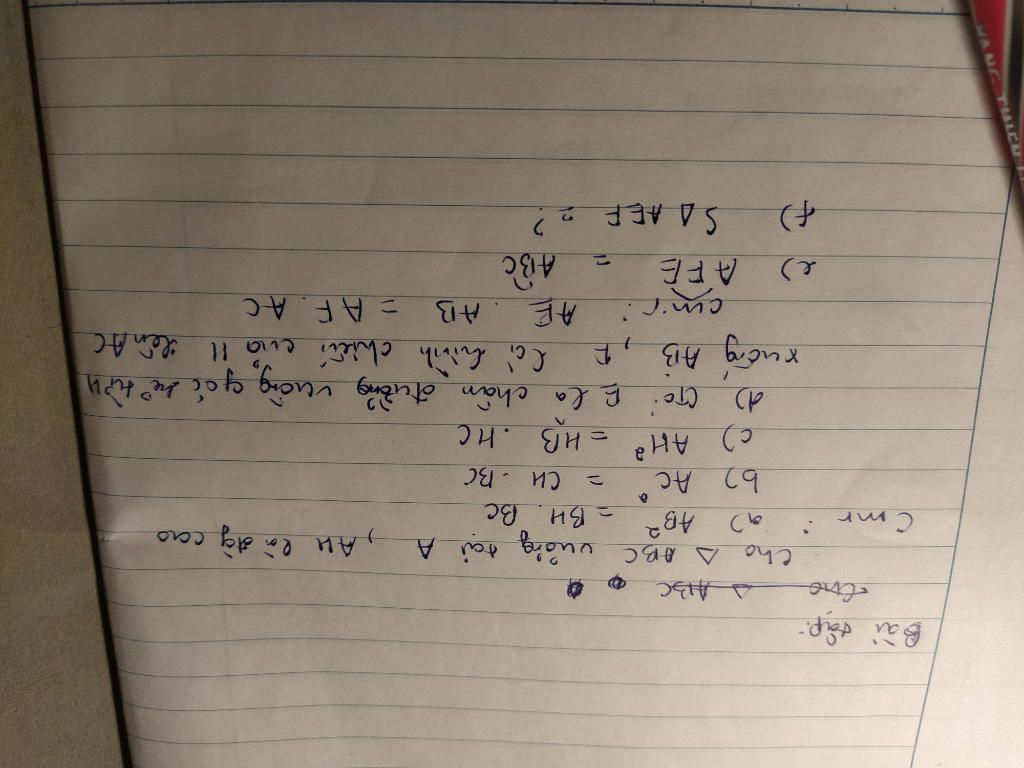 Bài tập:
Cho △ ABC
Cho △ ABC vuông tại A, AH là đg cao
Cmr: a) AB² = BH. BC
b) AC² = CH. BC
c) AH² = HB. HC
d) Gọi E là chân đường vuông góc kẻ từ H
xuống AB, F là hình chiếu của H lên AC
cm r: AE. AB = AF. AC
e) AFE = ABC
f) S△ AEF = ?